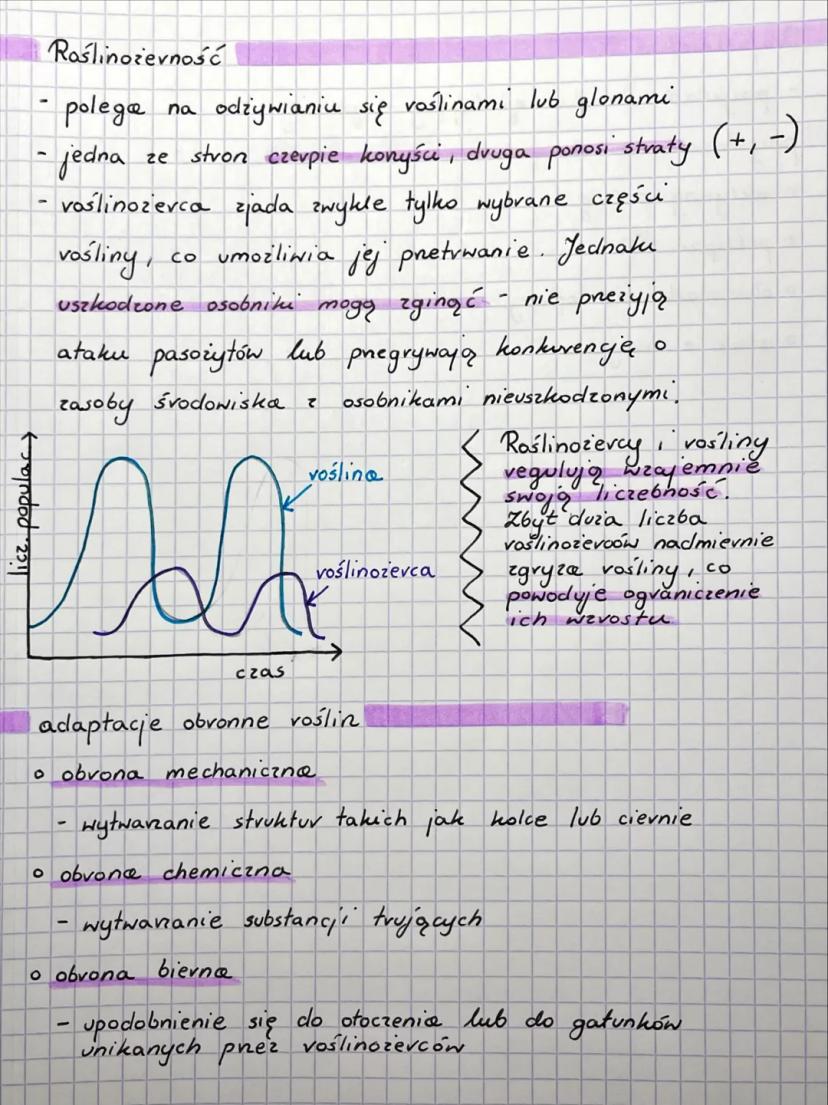 Roślinożerność
- polega na odżywianiu się roślinami lub glonami
- jedna ze stron czerpie korzyści, druga ponosi straty (+, -)
- roślinożerca zjada zwykle tylko wybrane części
rośliny, co umożliwia jej przetrwanie. Jednak
uszkodzone osobniki mogą zginąć - nie przeżyją
ataku pasożytów lub przegrywają konkurencję o
zasoby środowiska z osobnikami nieuszkodzonymi.
licz. populac
roślina
roślinożerca
czas
Roślinożercy i rośliny
regulują wzajemnie
swoją liczebność.
Zbyt duża liczba
roślinożerców nadmiernie
zgryza rośliny, co
powoduje ograniczenie
ich wzrostu
adaptacje obronne roślin
o obrona mechaniczna
- wytwarzanie struktur takich jak kolce lub ciernie
o obrona chemiczna
- wytwarzanie substancji trujących
o obrona bierna
- upodobnienie się do otoczenia lub do gatunków
unikanych przez roślinożerców